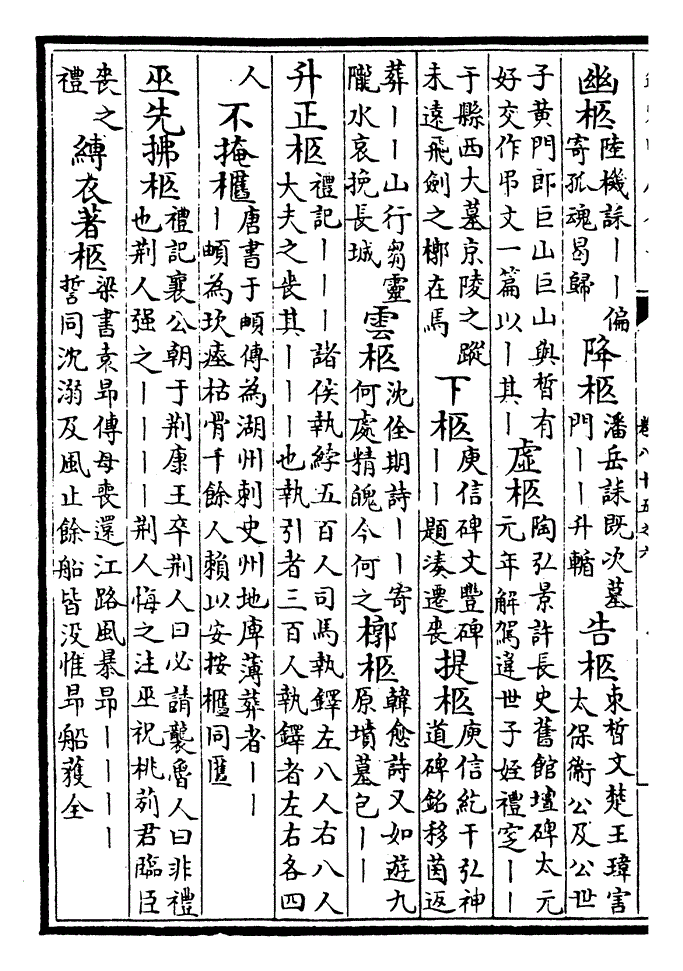 幽柩陸機誄丨丨偏寄孤魂曷歸降柩潘岳誄既次墓門丨丨升輴告柩束晳文楚王瑋害太保衛公及公世
子黃門郎巨山巨山與晢有好交作弔文一篇以丨其丨虛柩陶弘景許長史舊館壇碑太元元年解駕違世子姪禮窆丨丨
于縣西大墓京陵之蹤未遠飛劍之槨在焉下柩庾信碑文豐碑丨丨題湊遷喪提柩庾信紇干弘神道碑銘移茵返
葬丨丨山行芻靈隴水哀挽長城雲柩沈佺期詩丨丨寄何處精魄今何之槨柩韓愈詩又如遊九原墳墓包丨丨
升正柩禮記丨丨丨諸侯執綍五百人司馬執鐸左八人右八人大夫之喪其丨丨丨也執引者三百人執鐸者左右各四
人不掩櫃唐書于頔傳為湖州刺史州地庳薄葬者丨丨丨頔為坎瘞枯骨千餘人賴以安按櫃同匱
巫先拂柩禮記襄公朝于荆康王卒荆人曰必請襲魯人曰非禮也荆人强之丨丨丨丨荆人悔之注巫祝桃茢君臨臣
喪之禮縳衣著柩梁書袁昂傳母喪還江路風暴昂丨丨丨丨誓同沈溺及風止餘船皆没惟昂船獲全
卷八十五之六